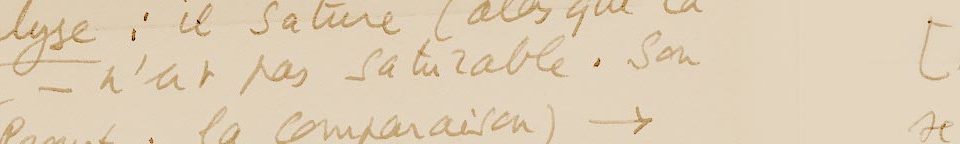 lyse : il sature (alors que la
– n'est pas saturable. Son [
Proust : la comparaison) → se